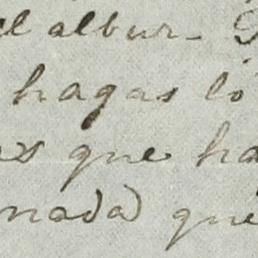 el albur
hagas lo
que ha
nada que